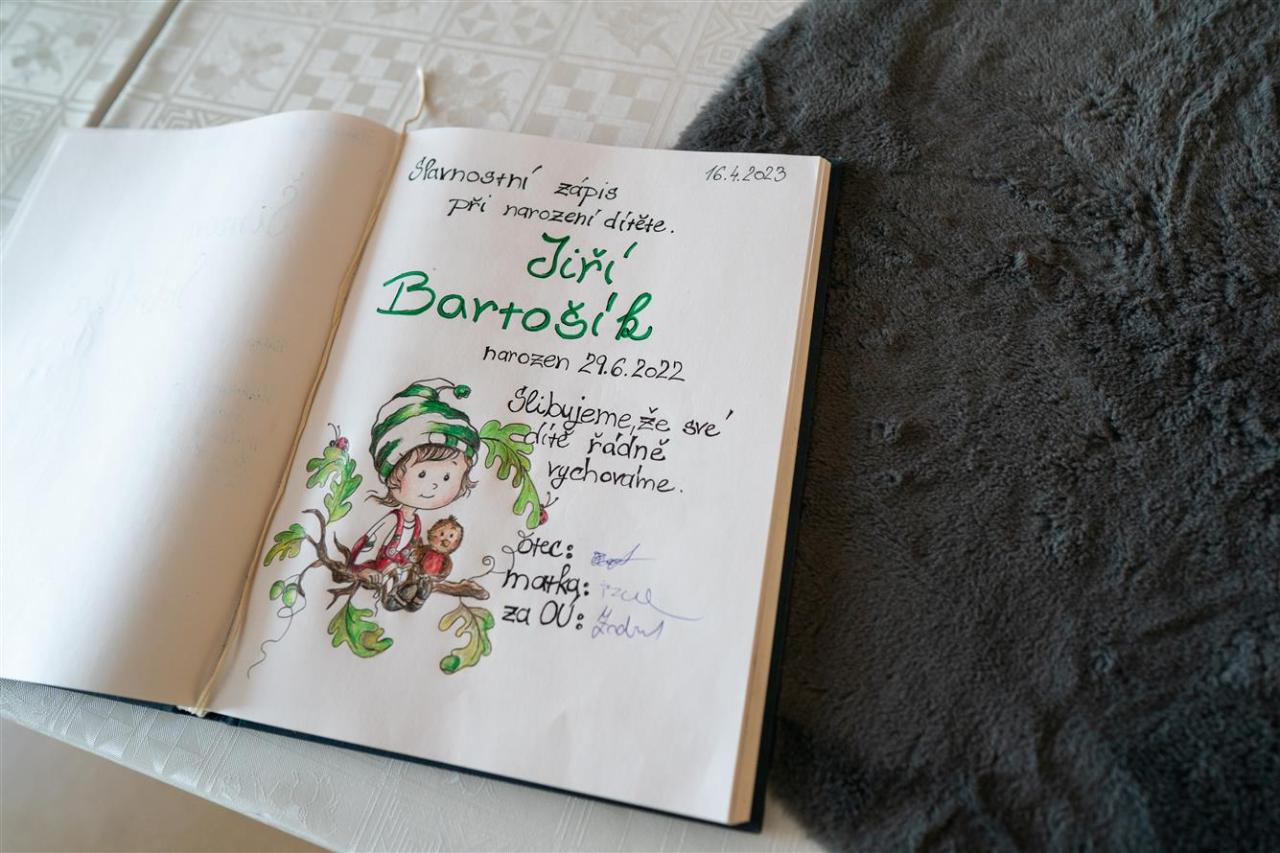 16.4.2023
Slavnostní zápis
při narození dítěte.
Jiří
Bartošík
narozen 29.6.2022
Slibujeme, že své
dítě řádně
vychováme.
otec:
matka:
za OÚ: